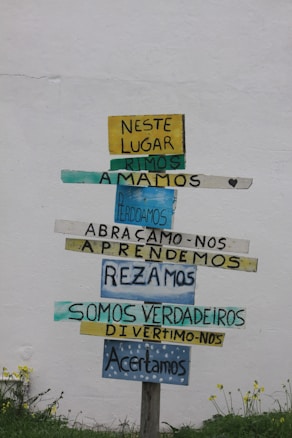 NESTE
LUGAR
RIMOS
AMAMOS
PERDOAMOS
ABRAÇAMO-NOS
APRENDEMOS
REZAMOS
SOMOS VERDADEIROS
DIVERTIMO-NOS
Acertamos